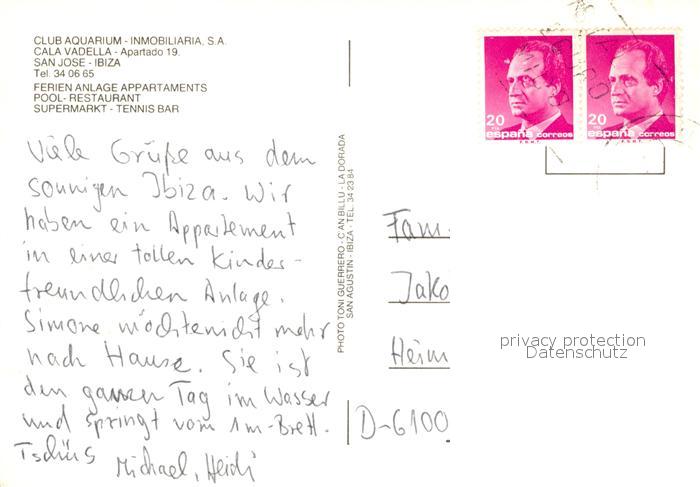 CLUB AQUARIUM - INMOBILIARIA, S.A.
CALA VADELLA - Apartado 19.
SAN JOSE - IBIZA
Tel. 34 06 65
FERIEN ANLAGE APPARTAMENTS
POOL- RESTAURANT
SUPERMARKT - TENNIS BAR
Viele Grüße aus dem
sonnigen Ibiza. Wir
haben ein Appartement
in einer tollen Kinder-
freundlichen Anlage.
Simone möchte nicht mehr
nach Hause. Sie ist
den ganzen Tag im Wasser
und springt vom 1m-Brett.
Tschüs Michael, Heidi
PHOTO TONI GUERRERO - C'AN BILLU - LA DORADA
SAN AGUSTIN - IBIZA - TEL. 34 23 84
20 PTS
españa correos
F.N.M.T.
20 PTS
españa correos
F.N.M.T.
Fam.
Jako
Heim
D-6100
privacy protection
Datenschutz